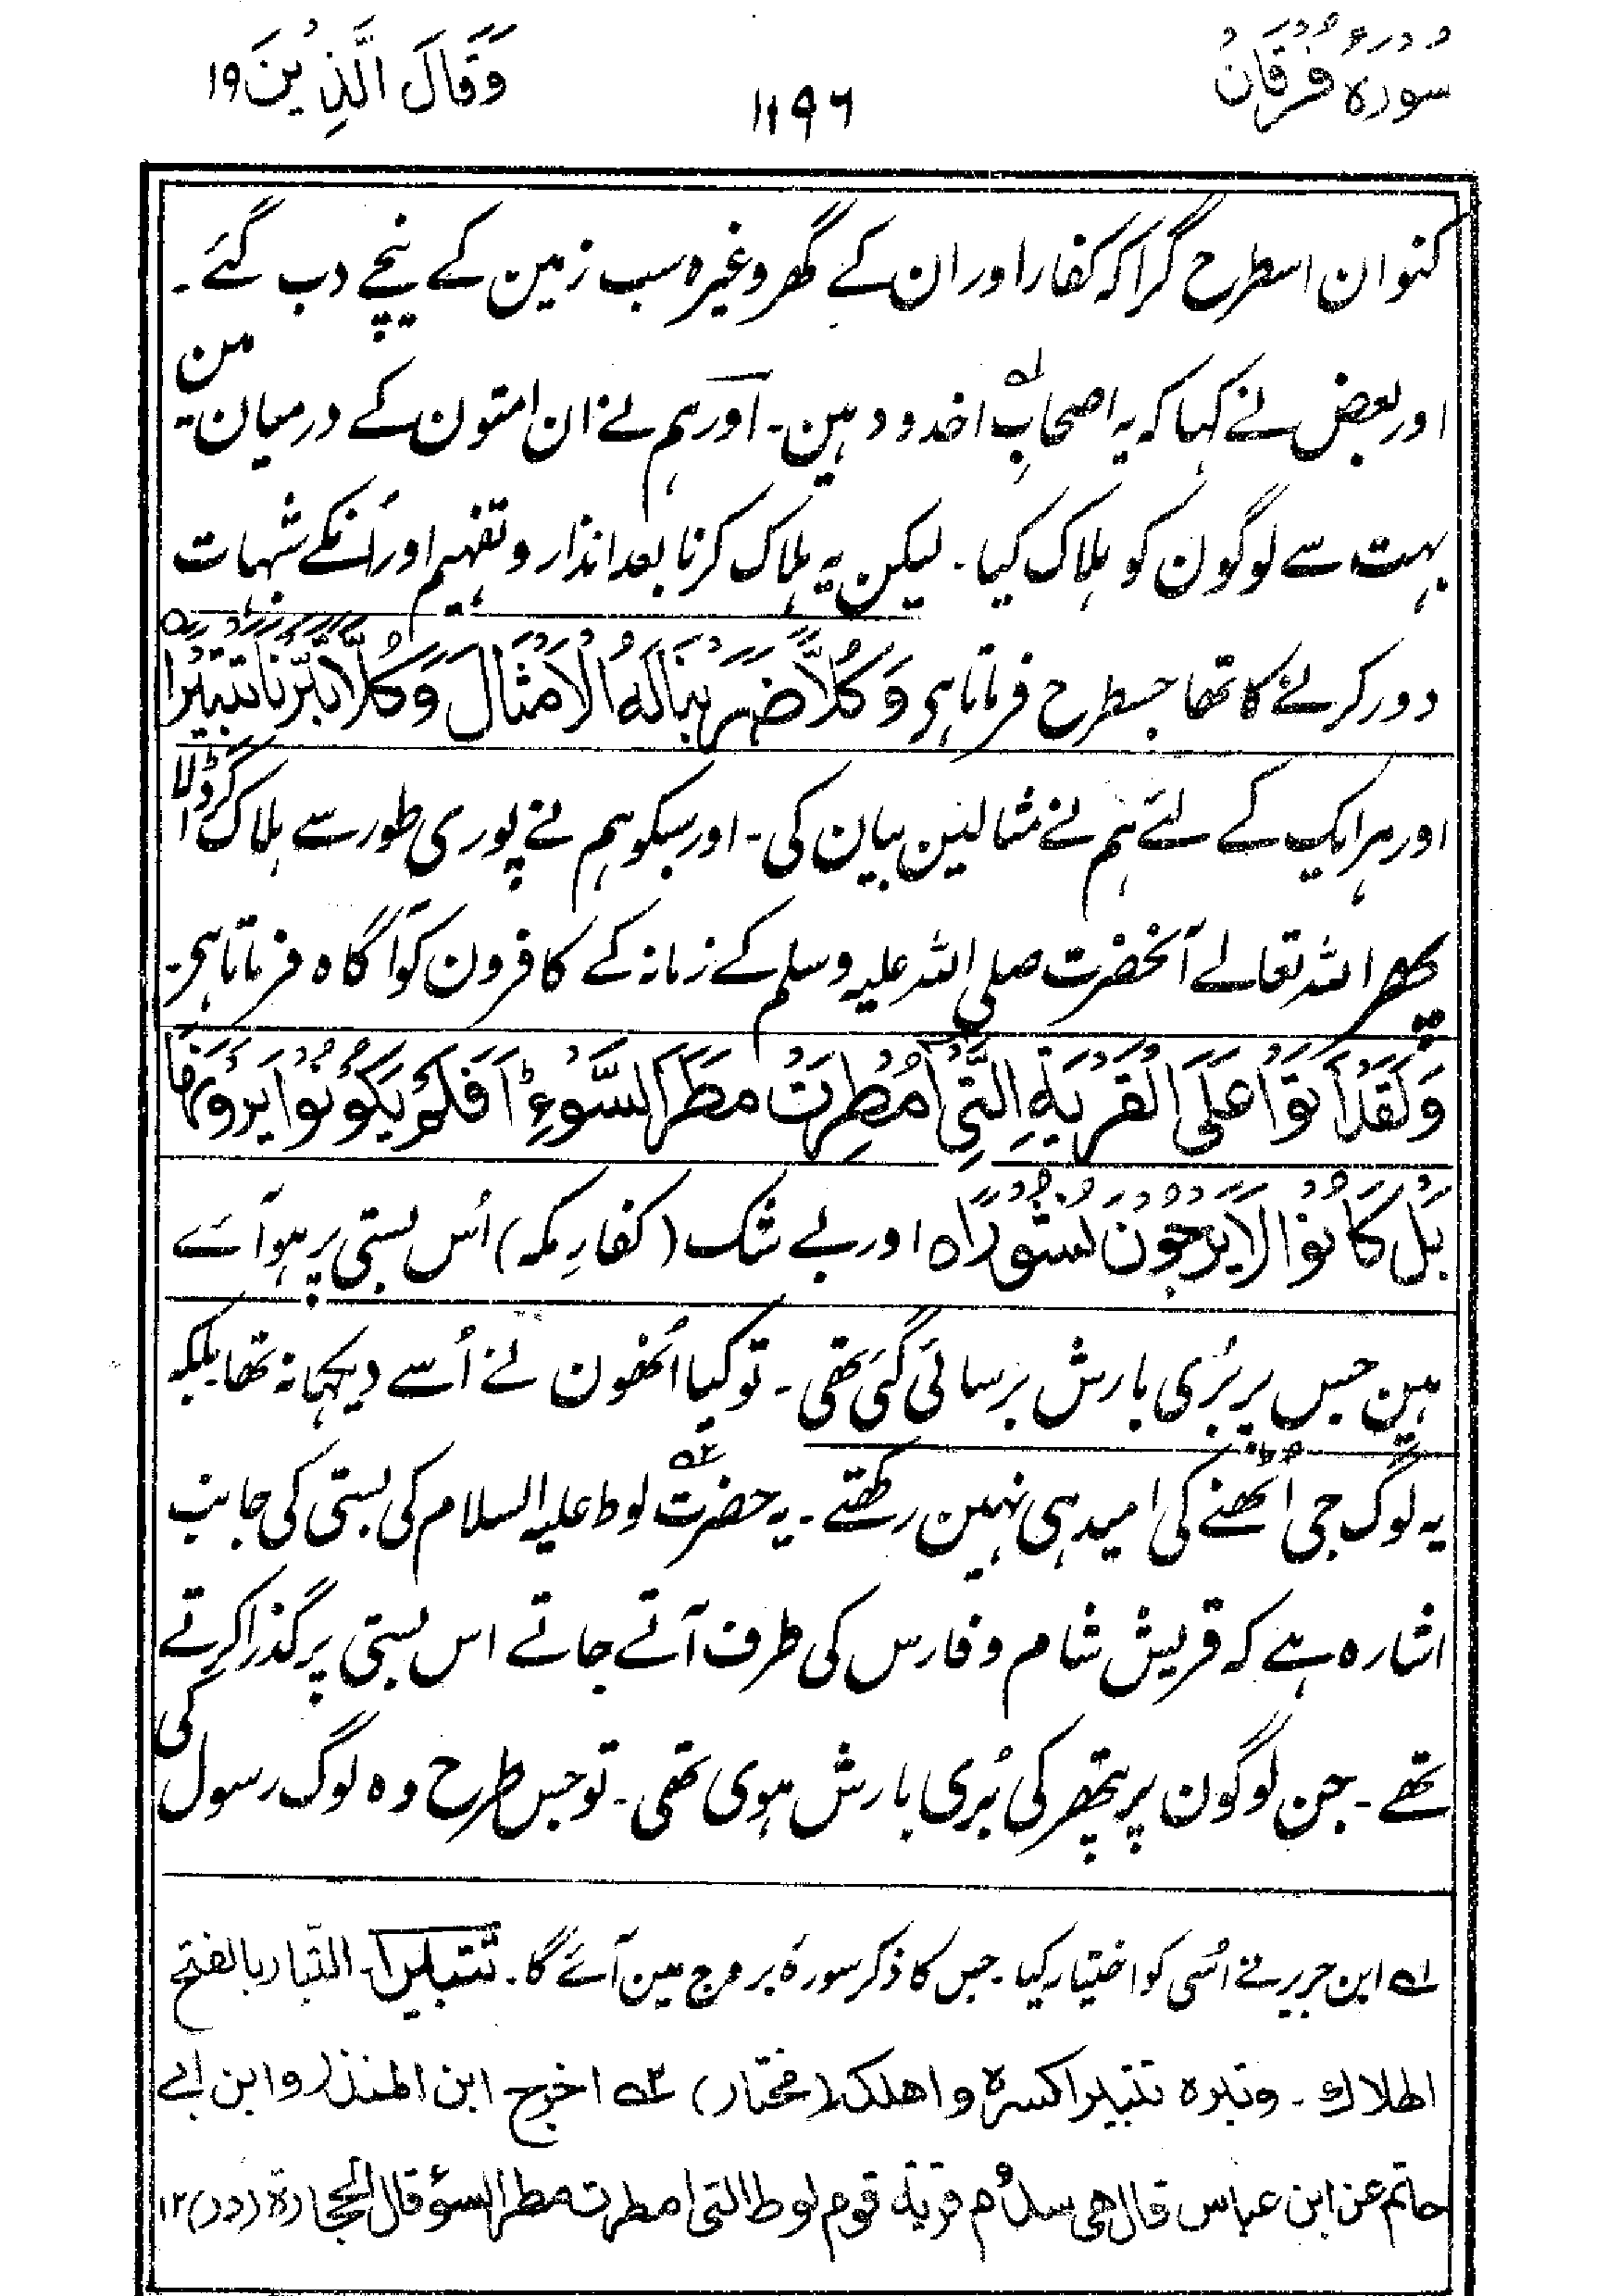 سُوْرَۃُ فُرْقَانْ
۱۱۹۶
وَقَالَ الَّذِیْنَ ۱۹
کنوان اسطرح گرا کہ کفار اور ان کے گھر وغیرہ سب زمین کے نیچے دب گئے ۔
اور بعض نے کہا کہ یہ اصحابِ ؎۱ اخدود ہین ۔ اور ہم نے ان امتون کے درمیان مین
بہت سے لوگون کو ہلاک کیا ۔ لیکن یہ ہلاک کرنا بعد انذار و تفہیم اور اُنکے شبہات
دور کرنے کا تھا جسطرح فرماتا ہی وَكُلًّا ضَرَبْنَا لَهُ الْاَمْثَالَ وَكُلًّا تَبَّرْنَا تَتْبِيْرًا ۝
اور ہر ایک کے لئے ہم نے مثالین بیان کی ۔ اور سبکو ہم نے پوری طور سے ہلاک کر ڈالا
پھر اللہ تعالے آنحضرت صلی اللہ علیہ وسلم کے زمانہ کے کافرون کو آگاہ فرماتا ہی ۔
وَلَقَدْ اَتَوْا عَلَى الْقَرْيَةِ الَّتِيْٓ اُمْطِرَتْ مَطَرَ السَّوْءِ ؕ اَفَلَمْ يَكُوْنُوْا يَرَوْنَهَا
بَلْ كَانُوْا لَا يَرْجُوْنَ نُشُوْرًا ۝ اور بے شک (کفارِ مکہ) اُس بستی پر ہو آئے
ہین جس پر بُری بارش برسائی گئی تھی ۔ تو کیا اُنھون نے اُسے دیکھا نہ تھا بلکہ
یہ لوگ جی اُٹھنے کی امید ہی نہین رکھتے ۔ یہ حضرت ؎۲ لوط علیہ السلام کی بستی کی جانب
اشارہ ہے کہ قریش شام و فارس کی طرف آتے جاتے اس بستی پر گذرا کرتے
تھے ۔ جن لوگون پر پتھر کی بُری بارش ہوی تھی ۔ تو جس طرح وہ لوگ رسول کی
؎۱ ابن جریر نے اُسی کو اختیار کیا ۔ جس کا ذکر سورۂ بروج مین آئے گا ۔ تتبیرا ۔ التبار بالفتح
الهلاك ۔ وتبره تتبيرا كسره واهلكه (مختار) ؎۲ اخرج ابن المنذر وابن ابي
حاتم عن ابن عباس قال هي سدوم قرية قوم لوط التي امطرت مطر السوء قال الحجارة (در) ۱۲